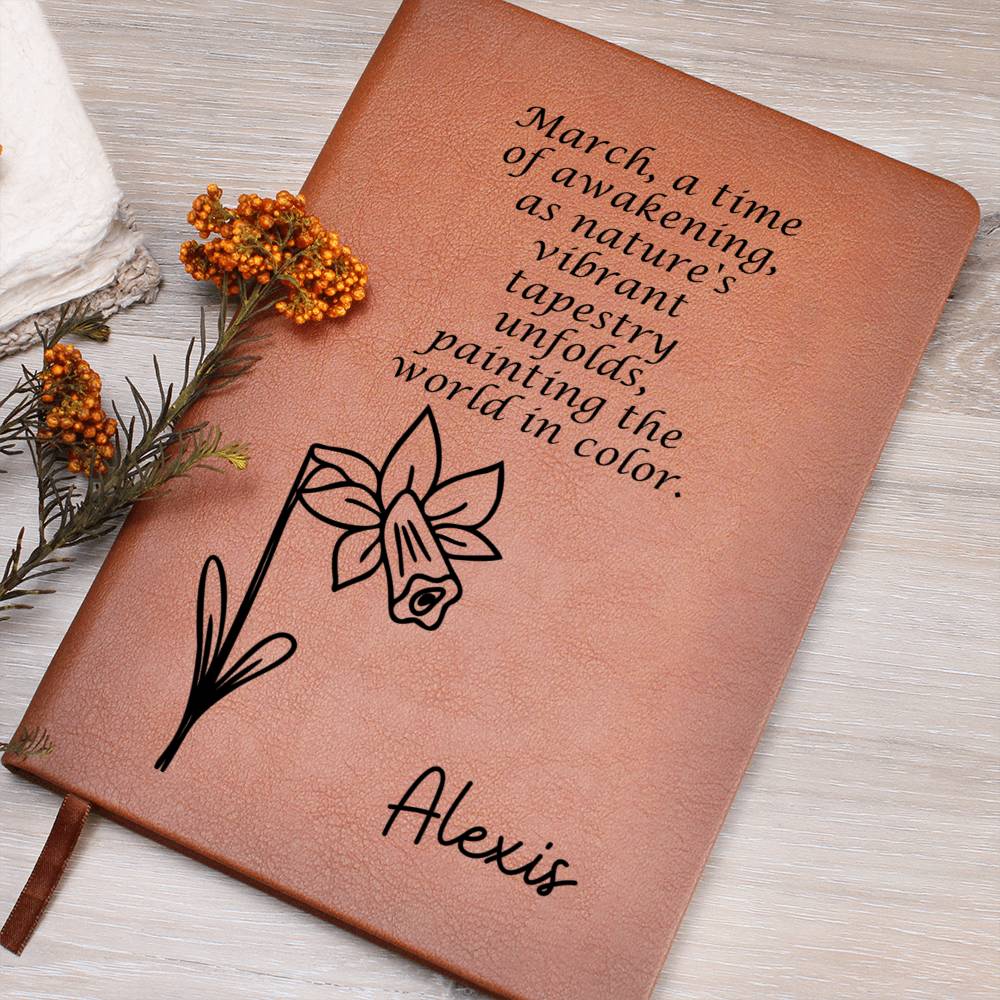 March, a time
of awakening,
as nature's
vibrant
tapestry
unfolds,
painting the
world in color.
Alexis